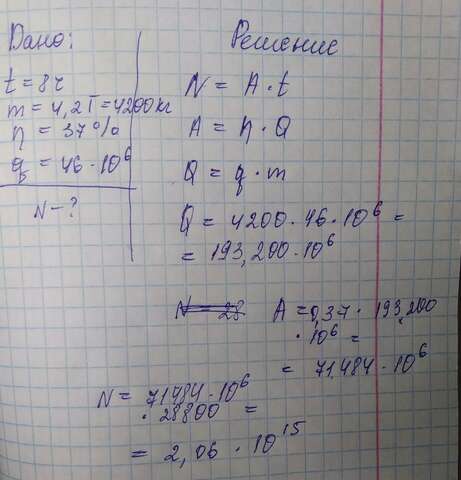 Дано:
t = 8ч
m = 4,2т = 4200кг
η = 37%
q = 46 · 10⁶
N - ?
Решение
N = A · t
A = η · Q
Q = q · m
Q = 4200 · 46 · 10⁶ =
= 193,200 · 10⁶
N = 28 A = 0,37 · 193,200
· 10⁶ =
= 71,484 · 10⁶
N = 71484 · 10⁶
· 28800 =
= 2,06 · 10¹⁵